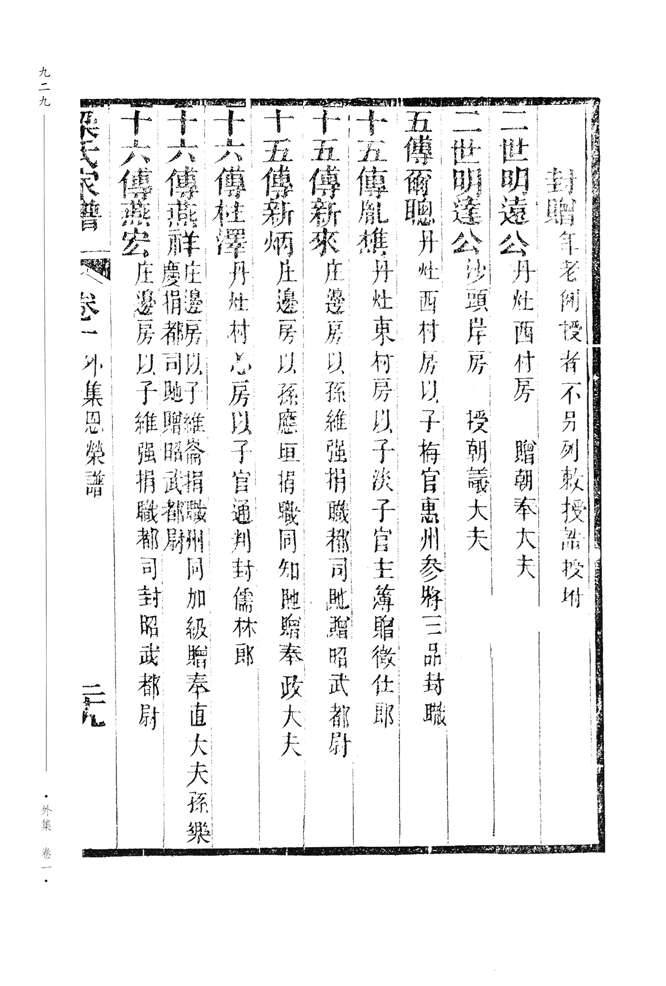 封贈年老例授者不另列敕授誥授坿
二世明遠公丹灶西村房 贈朝奉大夫
二世明達公沙頭岸房 授朝議大夫
五傳爾聰丹灶西村房以子梅官惠州參將三品封職
十五傳胤樵丹灶東柯房以子淡子官主簿贈徵仕郎
十五傳新來庄邊房以孫維强捐職都司貤贈昭武都尉
十五傳新炳庄邊房以孫應垣捐職同知貤贈奉政大夫
十六傳柱澤丹灶村心房以子官通判封儒林郎
十六傳燕祥庄邊房以子維崙捐職州同加級贈奉直大夫孫樂
慶捐都司貤贈昭武都尉
十六傳燕宏庄邊房以子維强捐職都司封昭武都尉
梁氏家譜 卷一外集恩榮譜 二十九
九二九
·外集 卷一·